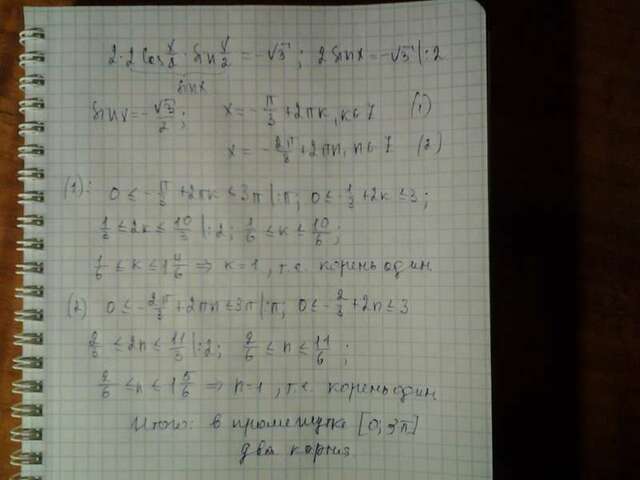 2·2cos x/2 · sin x/2 = -√3; 2sinx = -√3 |:2
sinx
sinx = -√3/2; x = -π/3 + 2πk, k∈Z (1)
x = -2π/3 + 2πn, n∈Z (2)
(1): 0 ≤ -π/3 + 2πk ≤ 3π |:π; 0 ≤ -1/3 + 2k ≤ 3;
1/3 ≤ 2k ≤ 10/3 |:2; 1/6 ≤ k ≤ 10/6;
1/6 ≤ k ≤ 1 4/6 ⇒ k=1, т.е. корень один
(2) 0 ≤ -2π/3 + 2πn ≤ 3π |:π; 0 ≤ -2/3 + 2n ≤ 3
2/3 ≤ 2n ≤ 11/3 |:2; 2/6 ≤ n ≤ 11/6;
2/6 ≤ n ≤ 1 5/6 ⇒ n=1, т.е. корень один
Итого: в промежутке [0; 3π]
два корня